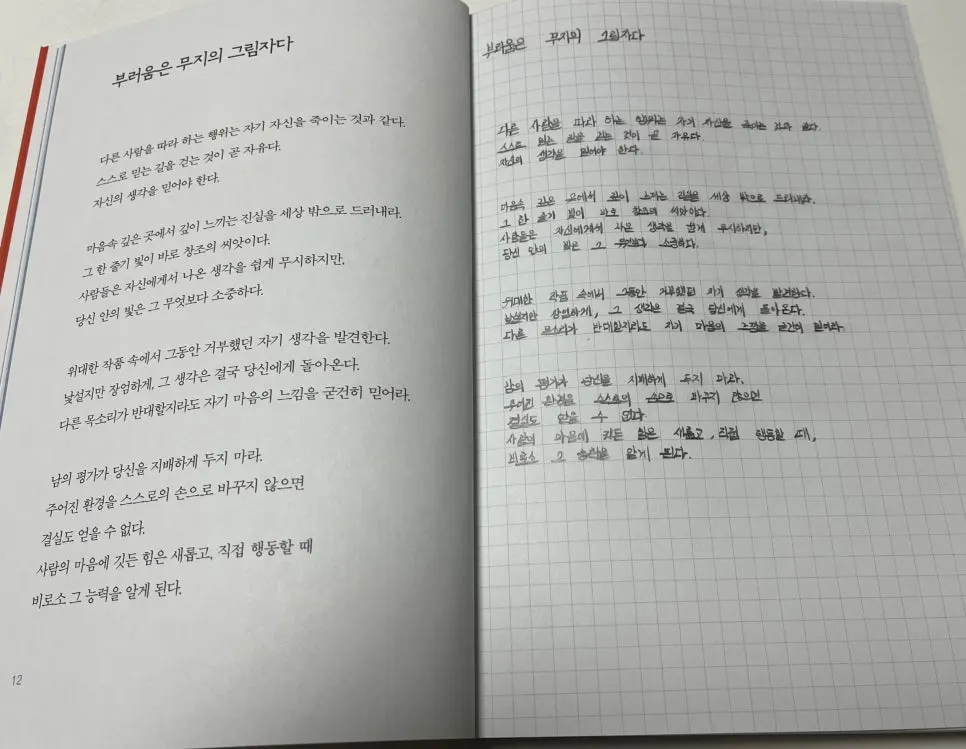 부러움은 무지의 그림자다
다른 사람을 따라 하는 행위는 자기 자신을 죽이는 것과 같다.
스스로 믿는 길을 걷는 것이 곧 자유다.
자신의 생각을 믿어야 한다.
마음속 깊은 곳에서 깊이 느끼는 진실을 세상 밖으로 드러내라.
그 한 줄기 빛이 바로 창조의 씨앗이다.
사람들은 자신에게서 나온 생각을 쉽게 무시하지만,
당신 안의 빛은 그 무엇보다 소중하다.
위대한 작품 속에서 그동안 거부했던 자기 생각을 발견한다.
낯설지만 장엄하게, 그 생각은 결국 당신에게 돌아온다.
다른 목소리가 반대할지라도 자기 마음의 느낌을 굳건히 믿어라.
남의 평가가 당신을 지배하게 두지 마라.
주어진 환경을 스스로의 손으로 바꾸지 않으면
결실도 얻을 수 없다.
사람의 마음에 깃든 힘은 새롭고, 직접 행동할 때
비로소 그 능력을 알게 된다.
12
부러움은 무지의 그림자다
다른 사람을 따라 하는 행위는 자기 자신을 죽이는 것과 같다.
스스로 믿는 길을 걷는 것이 곧 자유다.
자신의 생각을 믿어야 한다.
마음속 깊은 곳에서 깊이 느끼는 진실을 세상 밖으로 드러내라.
그 한 줄기 빛이 바로 창조의 씨앗이다.
사람들은 자신에게서 나온 생각을 쉽게 무시하지만,
당신 안의 빛은 그 무엇보다 소중하다.
위대한 작품 속에서 그동안 거부했던 자기 생각을 발견한다.
낯설지만 장엄하게, 그 생각은 결국 당신에게 돌아온다.
다른 목소리가 반대할지라도 자기 마음의 느낌을 굳건히 믿어라
남의 평가가 당신을 지배하게 두지 마라.
주어진 환경을 스스로의 손으로 바꾸지 않으면
결실도 얻을 수 없다.
사람의 마음에 깃든 힘은 새롭고, 직접 행동할 때,
비로소 그 능력을 알게 된다.